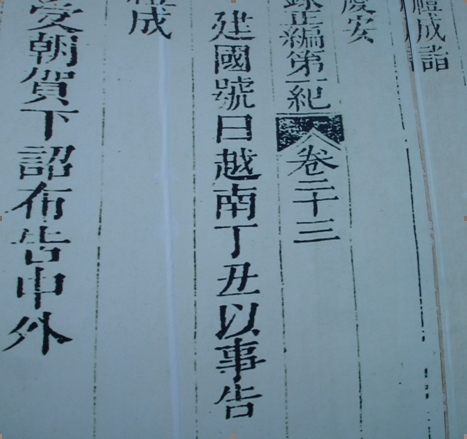 禮成詣
慶安
錄正編第一紀 卷二十三
建國號曰越南丁丑以事告
禮成
受朝賀下詔布告中外